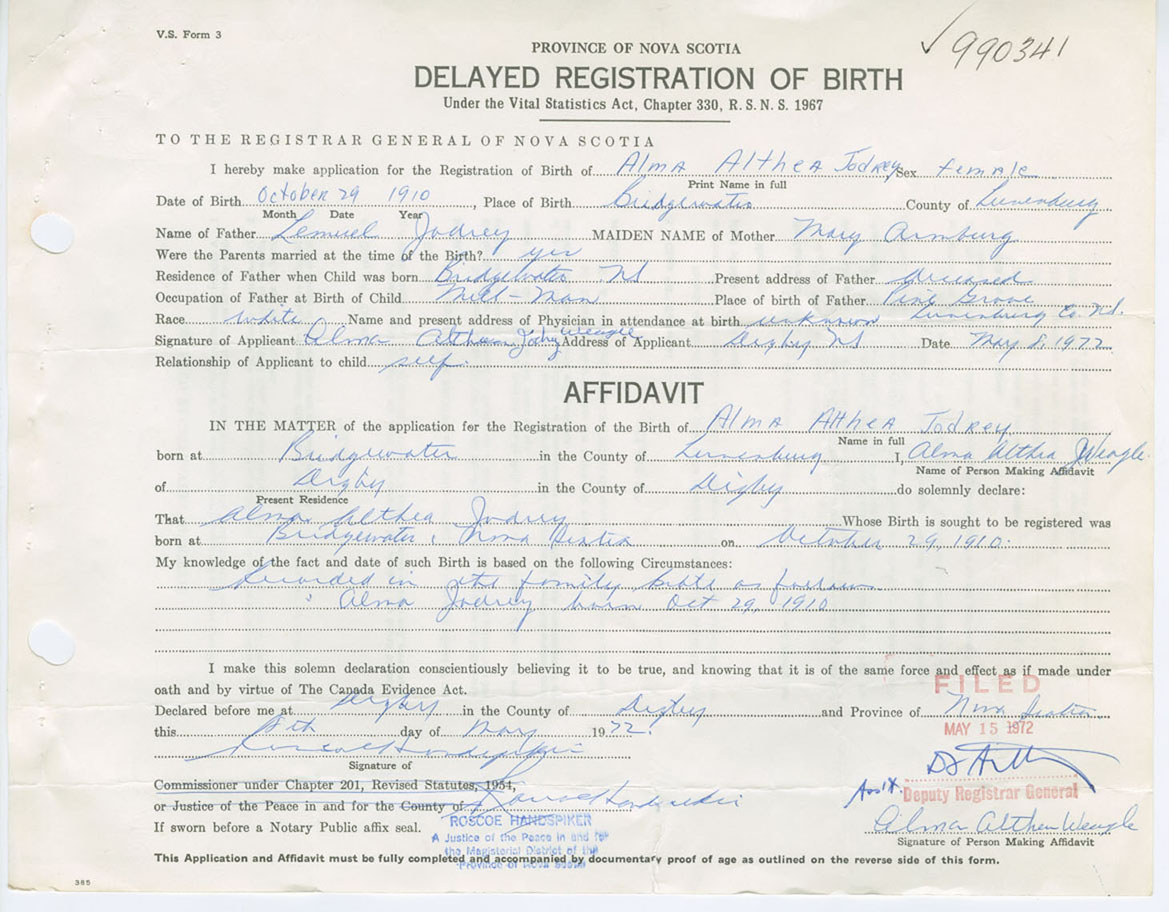 V.S. Form 3
990341
PROVINCE OF NOVA SCOTIA
DELAYED REGISTRATION OF BIRTH
Under the Vital Statistics Act, Chapter 330, R. S. N. S. 1967
TO THE REGISTRAR GENERAL OF NOVA SCOTIA
I hereby make application for the Registration of Birth of Alma Althea Jodrey Sex female
Print Name in full
Date of Birth October 29 1910, Place of Birth Bridgewater County of Lunenburg
Month Date Year
Name of Father Lemuel Jodrey MAIDEN NAME of Mother Mary Armburg
Were the Parents married at the time of the Birth? yes
Residence of Father when Child was born Bridgewater NS Present address of Father deceased
Occupation of Father at Birth of Child Mill-Man Place of birth of Father Pine Grove
Race white Name and present address of Physician in attendance at birth unknown Lunenburg Co. N.S.
Signature of Applicant Alma Althea Jodrey Weagle Address of Applicant Digby NS Date May 8, 1972
Relationship of Applicant to child self.
AFFIDAVIT
IN THE MATTER of the application for the Registration of the Birth of Alma Althea Jodrey
Name in full
born at Bridgewater in the County of Lunenburg I, Alma Althea J Weagle
Name of Person Making Affidavit
of Digby in the County of Digby do solemnly declare:
Present Residence
That Alma Althea Jodrey Whose Birth is sought to be registered was
born at Bridgewater, Nova Scotia on October 29, 1910.
My knowledge of the fact and date of such Birth is based on the following Circumstances:
Recorded in the family bible as follows
" Alma Jodrey born Oct 29, 1910
I make this solemn declaration conscientiously believing it to be true, and knowing that it is of the same force and effect as if made under
oath and by virtue of The Canada Evidence Act.
FILED
Declared before me at Digby in the County of Digby and Province of Nova Scotia
this 8th day of May 1972.
MAY 15 1972
Signature of
Commissioner under Chapter 201, Revised Statutes, 1954,
or Justice of the Peace in and for the County of
Ass't. Deputy Registrar General
ROSCOE HANDSPIKER
If sworn before a Notary Public affix seal.
A Justice of the Peace in and for
the Magisterial District of the
Province of Nova Scotia
Alma Althea Weagle
Signature of Person Making Affidavit
This Application and Affidavit must be fully completed and accompanied by documentary proof of age as outlined on the reverse side of this form.
385